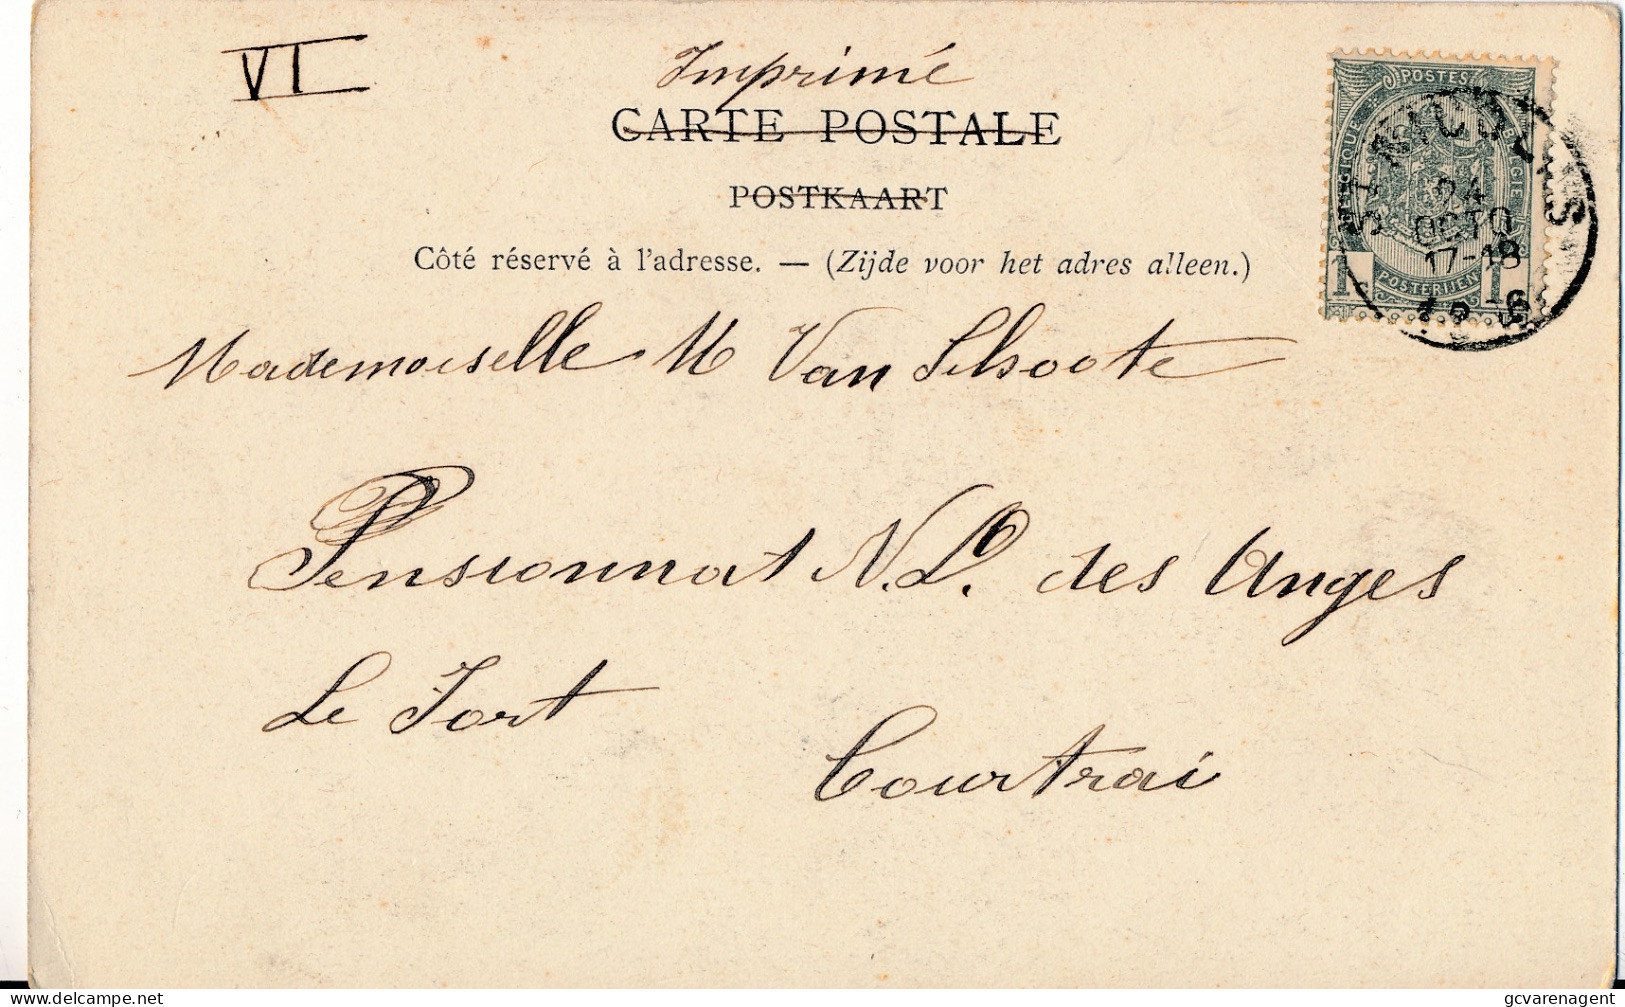 VI
Imprimé
CARTE POSTALE
POSTKAART
Côté réservé à l'adresse. — (Zijde voor het adres alleen.)
POSTES
BELGIQUE
BELGIË
POSTERIJEN
1 1
ST NICOLAS
24
OCTO
17-18
Mademoiselle M Van Schoote
Pensionnat N. D. des Anges
Le Fort
Courtrai
delcampe.net
gcvarenagent